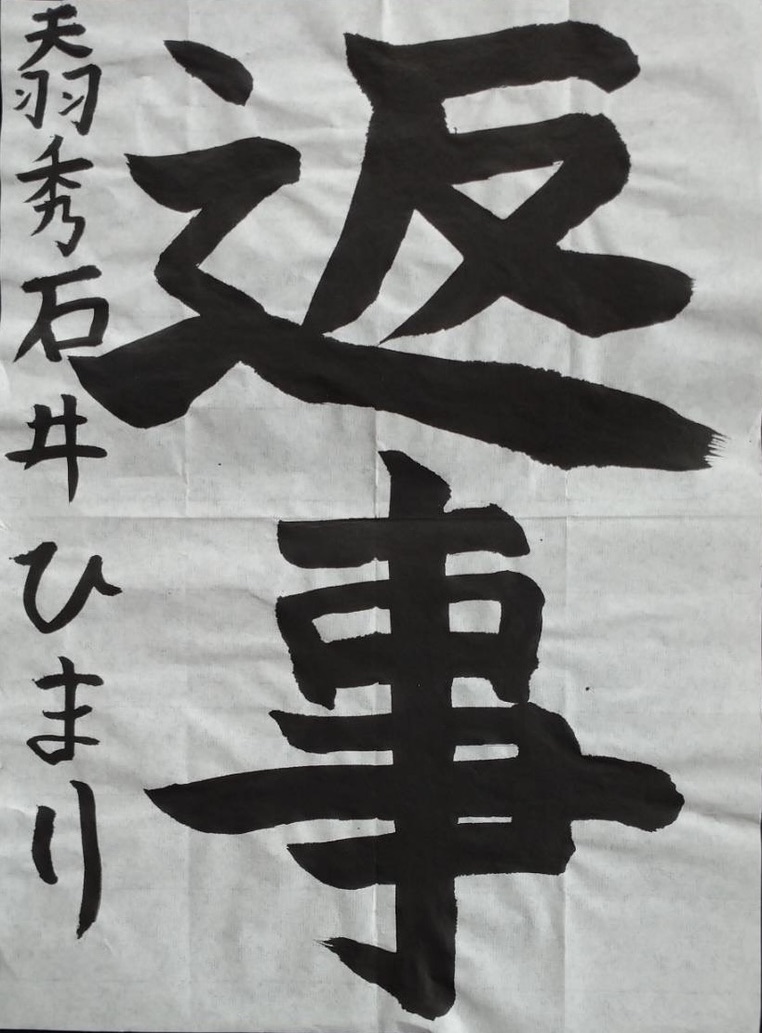 返事
天羽秀石井ひまり